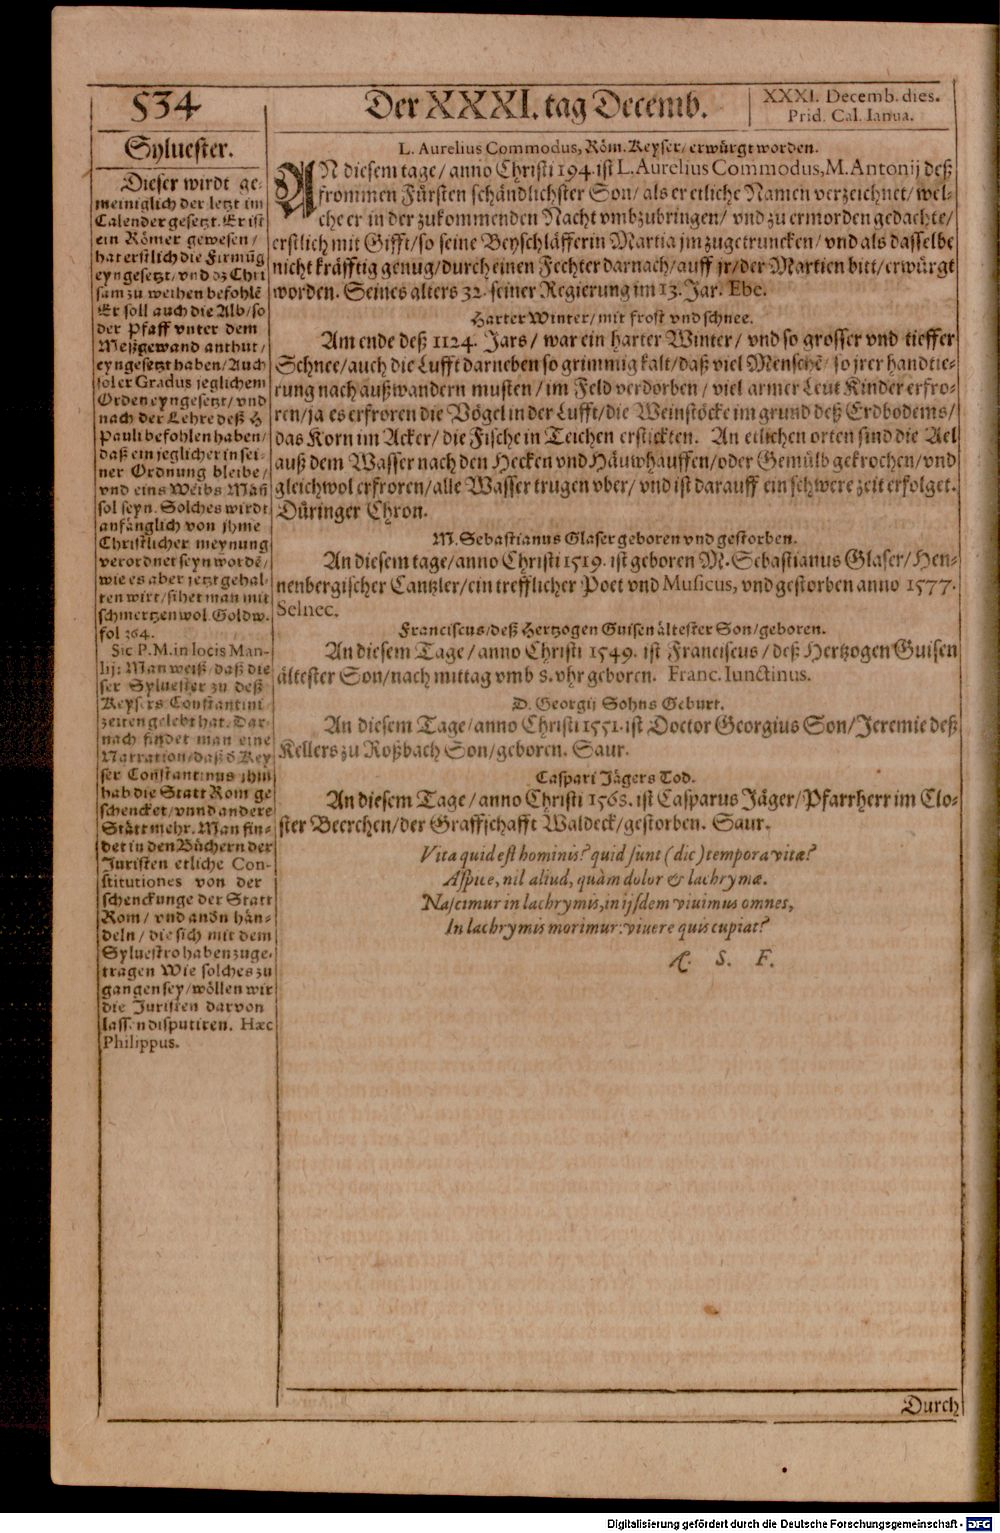 534
Der XXXI. tag Decemb.
XXXI. Decemb. dies.
Prid. Cal. Ianua.
Syluester.
Dieser wirdt ge-
meiniglich der letzt im
Calender gesetzt. Er ist
ein Römer gewesen/
hat erstlich die Firmũg
eyngesetzt/vnd dz Chri
sam zu weihen befohlẽ
Er soll auch die Alb/so
der Pfaff vnter dem
Meßgewand anthut/
eyngesetzt haben/Auch
sol er Gradus jeglichem
Orden eyngesetzt/vnd
nach der Lehre deß H
Pauli befohlen haben/
daß ein jeglicher in sei-
ner Ordnung bleibe/
vnd eins Weibs Mañ
sol seyn. Solches wirdt
anfänglich von jhme
Christlicher meynung
verordnet seyn wordẽ/
wie es aber jetzt gehal-
ten wirt/sihet man mit
schmertzen wol. Goldw.
fol 264.
Sic P. M. in locis Man-
lij: Man weiß/daß die
ser Syluester zu deß
Keysers Constantini
zeiten gelebt hat. Dar-
nach findet man eine
Narration/daß d Key
ser Constantinus jhm
hab die Statt Rom ge
schencket/vnnd andere
Stätt mehr. Man fin-
det in den Büchern der
Juristen etliche Con-
stitutiones von der
schenckunge der Statt
Rom/ vnd andn hän-
deln/ die sich mit dem
Syluestro haben zuge-
tragen Wie solches zu
gangen sey/wöllen wir
die Juristen darvon
lassen disputiren. Hæc
Philippus.
L. Aurelius Commodus, Röm. Keyser/erwürgt worden.
AN diesem tage/ anno Christi 194. ist L. Aurelius Commodus, M. Antonij deß
frommen Fürsten schändlichster Son/ als er etliche Namen verzeichnet/ wel-
che er in der zukommenden Nacht vmbzubringen/ vnd zu ermorden gedachte/
erstlich mit Gifft/so seine Beyschläfferin Martia jm zugetruncken/ vnd als dasselbe
nicht kräfftig genug/durch einen Fechter darnach/auff jr/der Martien bitt/erwürgt
worden. Seines alters 32. seiner Regierung im 13. Jar. Ebe.
Harter Winter/ mit frost vnd schnee.
Am ende deß 1124. Jars/ war ein harter Winter/ vnd so grosser vnd tieffer
Schnee/auch die Lufft darneben so grimmig kalt/daß viel Menschẽ/ so jrer handtie-
rung nach außwandern musten/im Feld verdorben/ viel armer Leut Kinder erfro-
ren/ja es erfroren die Vögel in der Lufft/die Weinstöcke im grund deß Erdbodems/
das Korn im Acker/ die Fische in Teichen erstickten. An etlichen orten sind die Ael
auß dem Wasser nach den Hecken vnd Häuwhauffen/oder Gemülb gekrochen/vnd
gleichwol erfroren/alle Wasser trugen vber/ vnd ist darauff ein schwere zeit erfolget.
Düringer Chron.
M. Sebastianus Glaser geboren vnd gestorben.
An diesem tage/anno Christi 1519. ist geboren M. Sebastianus Glaser/ Hen-
nenbergischer Cantzler/ein trefflicher Poet vnd Musicus, vnd gestorben anno 1577.
Selnec.
Franciscus/deß Hertzogen Guisen ältester Son/geboren.
An diesem Tage/anno Christi 1549. ist Franciscus/ deß Hertzogen Guisen
ältester Son/nach mittag vmb 8. vhr geboren. Franc. Iunctinus.
D. Georgij Sohns Geburt.
An diesem Tage/anno Christi 1551. ist Doctor Georgius Son/Jeremie deß
Kellers zu Roßbach Son/geboren. Saur.
Caspari Jägers Tod.
An diesem Tage/ anno Christi 1568. ist Casparus Jäger/Pfarrherr im Clo-
ster Beerchen/der Graffschafft Waldeck/gestorben. Saur.
Vita quid est hominis? quid sunt (dic) tempora vitæ?
Aspice, nil aliud, quàm dolor & lachrymæ.
Nascimur in lachrymis, in ijsdem viuimus omnes,
In lachrymis morimur: viuere quis cupiat?
Æ. S. F.
Durch
Digitalisierung gefördert durch die Deutsche Forschungsgemeinschaft - DFG